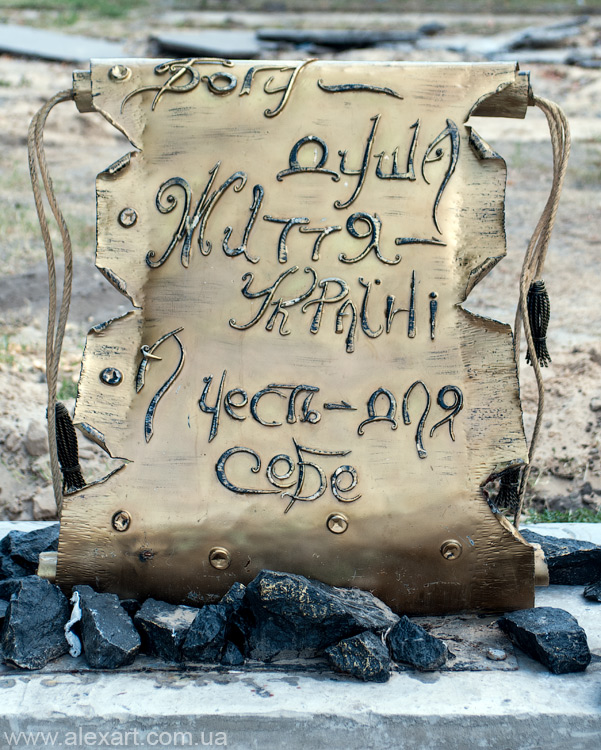 Богу –
душа
Життя –
Україні
А честь – для
себе
www.alexart.com.ua